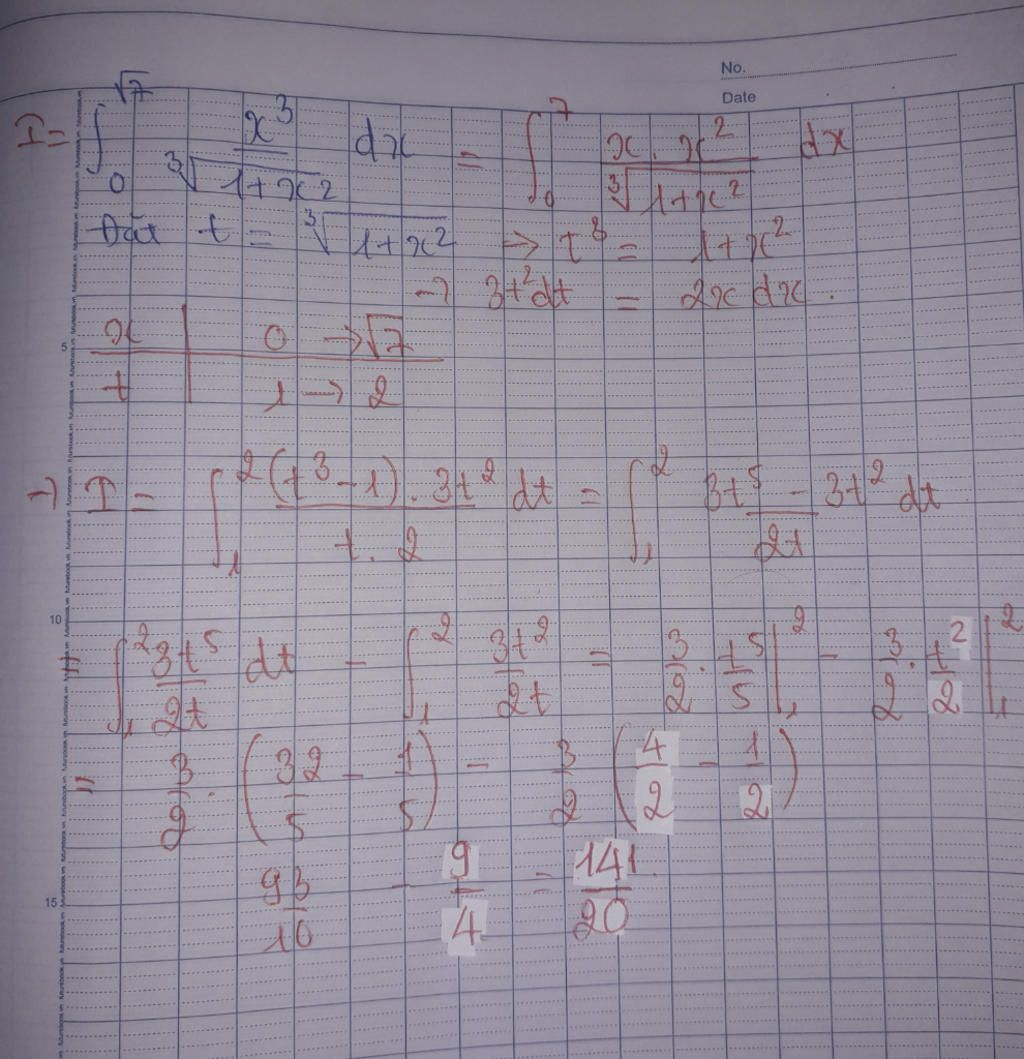 No.
Date
I = ∫₀^√7 x³/∛(1+x²) dx = ∫₀^7 x.x²/∛(1+x²) dx
Đặt t = ∛(1+x²) → t³ = 1+x²
→ 3t²dt = 2x dx.
x | 0 → √7
5
t | 1 → 2
→ I = ∫₁² (t³-1).3t²/(t.2) dt = ∫₁² (3t⁵ - 3t²)/(2t) dt
10
= ∫₁² 3t⁵/(2t) dt - ∫₁² 3t²/(2t) = 3/2 . t⁵/5 |₁² - 3/2 . t²/2 |₁²
= 3/2 . (32/5 - 1/5) - 3/2 (4/2 - 1/2)
15
93/10 - 9/4 = 141/20